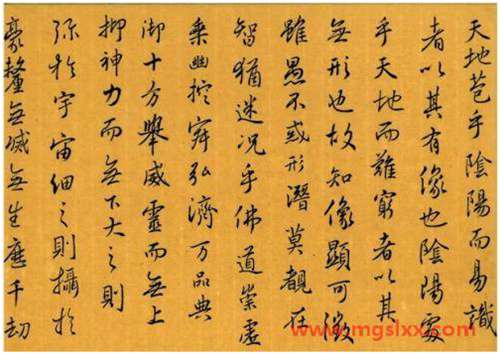 天地苞乎陰陽而易識
者以其有像也陰陽處
乎天地而難窮者以其
無形也故知像顯可徵
雖愚不惑形潛莫覩在
智猶迷况乎佛道崇虛
乘幽控寂弘濟万品典
御十方舉威靈而無上
抑神力而無下大之則
弥於宇宙細之則攝於
豪釐無滅無生歷千劫
www.mgslxx.com